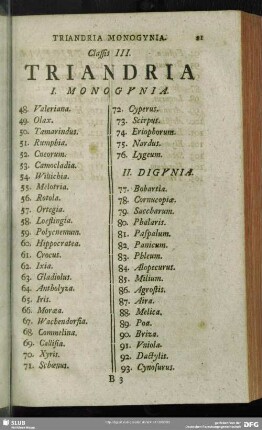 TRIANDRIA MONOGYNIA. 21
Classis III.
TRIANDRIA
I. MONOGYNIA.
48. Valeriana.
49. Olax.
50. Tamarindus.
51. Rumphia.
52. Cneorum.
53. Comocladia.
54. Willichia.
55. Melotria.
56. Rotola.
57. Ortegia.
58. Loeflingia.
59. Polycnemum.
60. Hippocratea.
61. Crocus.
62. Ixia.
63. Gladiolus.
64. Antholyza.
65. Iris.
66. Moræa.
67. Wachendorfia.
68. Commelina.
69. Callisia.
70. Xyris.
71. Schœnus.
72. Cyperus.
73. Scirpus.
74. Eriophorum.
75. Nardus.
76. Lygeum.
II. DIGYNIA.
77. Bobartia.
78. Cornucopiæ.
79. Saccharum.
80. Phalaris.
81. Paspalum.
82. Panicum.
83. Phleum.
84. Alopecurus.
85. Milium.
86. Agrostis.
87. Aira.
88. Melica.
89. Poa.
90. Briza.
91. Vniola.
92. Dactylis.
93. Cynosurus.
B 3
SLUB
DFG